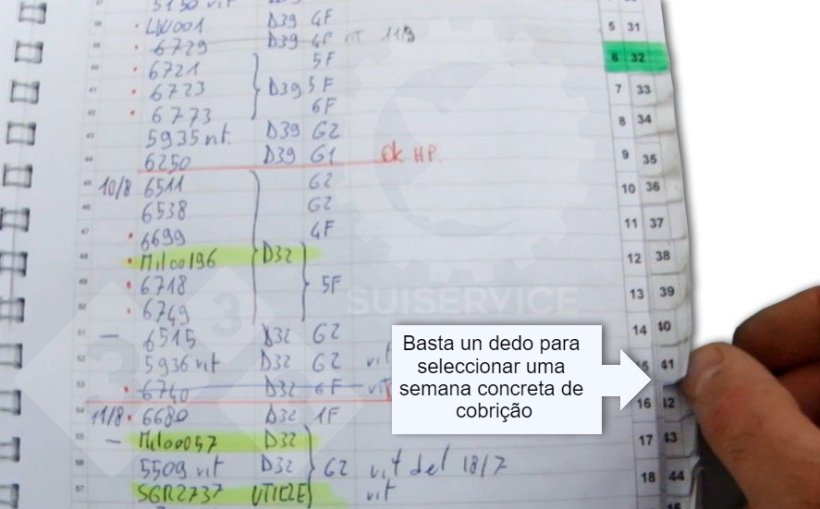 5150 nt
LW001 D39 4F
6729 D39 4F nt 11/9
6721 5F
6723 D39 5F
6773 6F
5935 nt. D39 G2
6250 D39 G1 Ok HP.
10/8 6511 G2
6538 G2
6699 4F
Miloo196 D32
6718 5F
6749
6515 D32 G2
5936 nt D32 G2 vit
6740 D32 6F
11/8 6680 D32 1F
Miloo057 D32
5509 nt D32 G2 vit del 18/7
SGR2737 UTICZE vit
5 31
6 32
7 33
8 34
9 35
10 36
11 37
12 38
13 39
14 40
41
16 42
17 43
18 44
333
SUISERVICE
Basta un dedo para
seleccionar uma
semana concreta de
cobrição